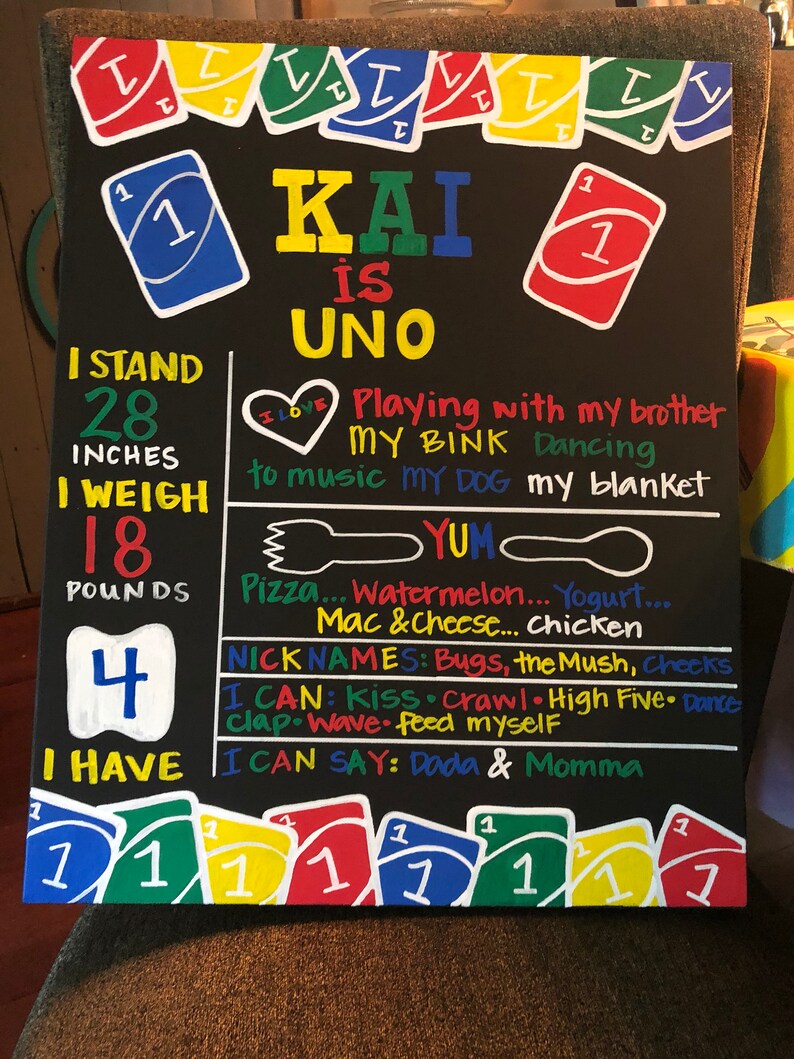 1 1 1 1 1 1 1 1
1 1 1 1 1 1 1
1 1
1 1
KAI
is
UNO
I STAND
28
INCHES
I WEIGH
18
POUNDS
4
I HAVE
I LOVE
Playing with my brother
MY BINK Dancing
to music MY DOG my blanket
YUM
Pizza... Watermelon... Yogurt...
Mac & Cheese... chicken
NICKNAMES: Bugs, the Mush, cheeks
I CAN: Kiss • Crawl • High Five • Dance
clap • Wave • feed myself
I CAN SAY: Dada & Momma
1 1 1 1 1 1 1
1 1 1 1 1 1 1 1